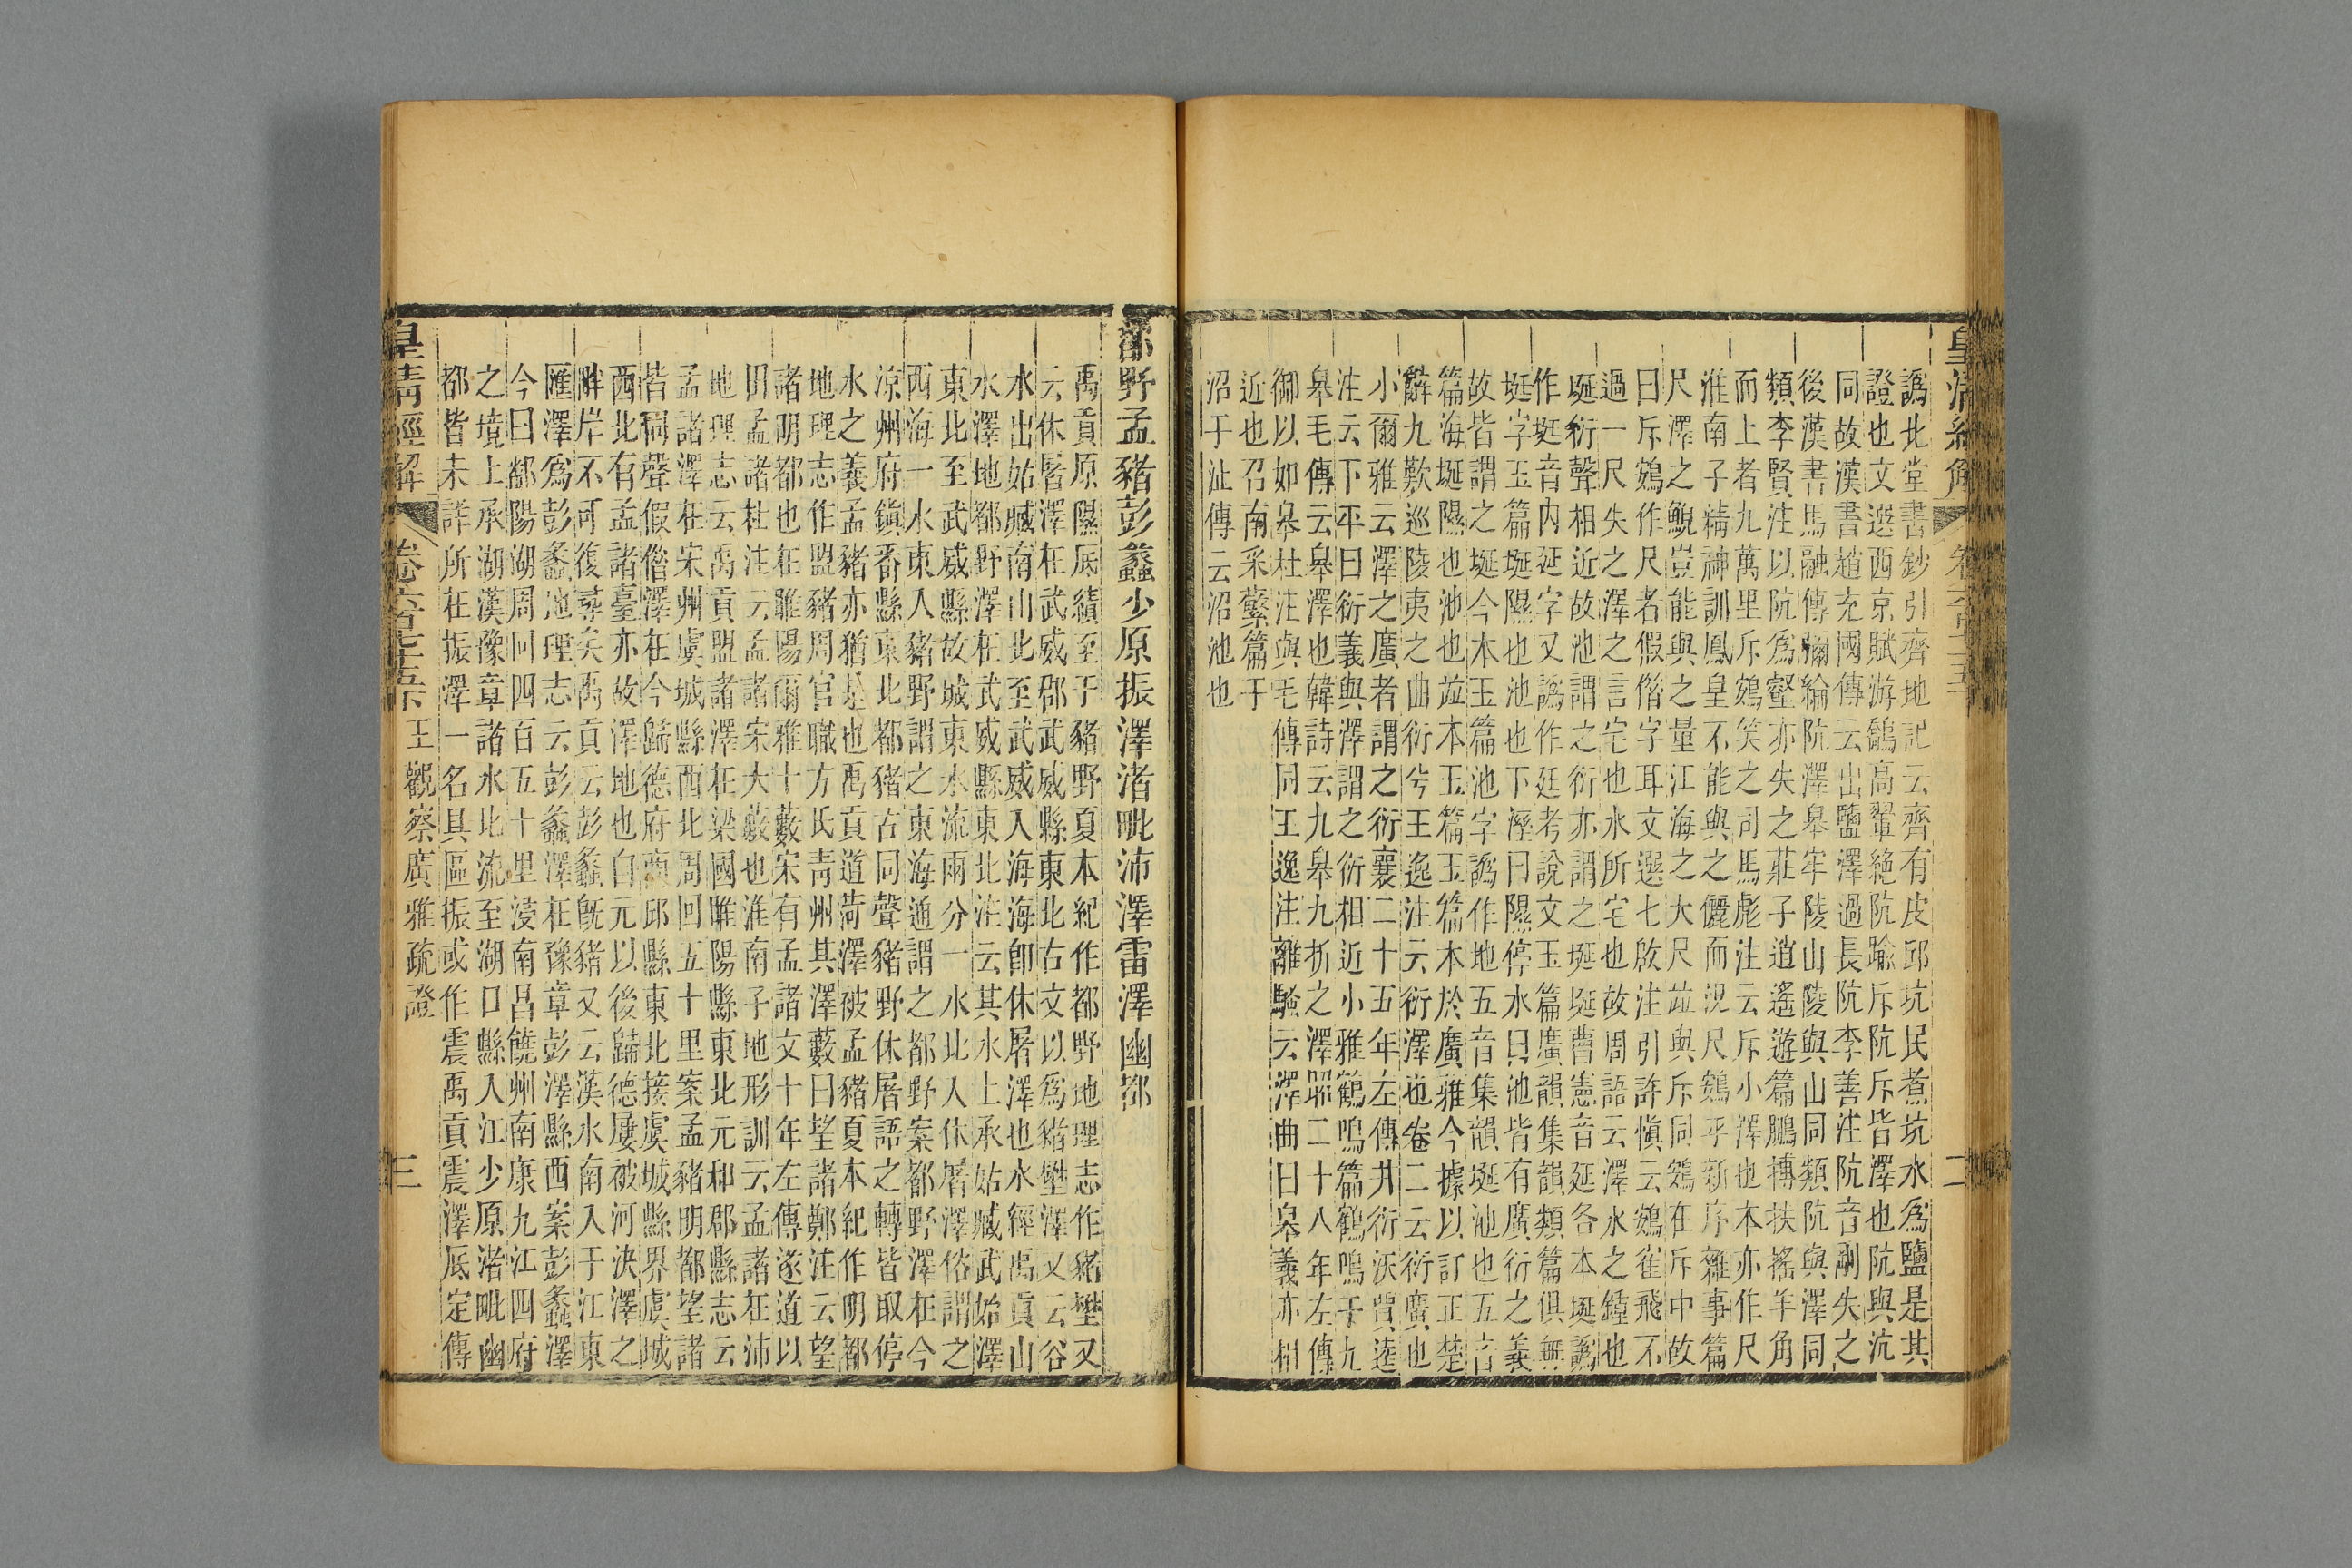 皇清經解
二
譌北堂書鈔引齊地記云齊有皮邱坑民煮坑水爲鹽是其
證也文選西京賦游鷮高翬絶阬踰斥阬斥皆澤也阬與沆
同故漢書趙充國傳云出鹽澤過長阬李善注阬音剛失之
後漢書馬融傳彌綸阬澤皋牢陵山陵與山同類阬與澤同
類李賢注以阬爲壑亦失之莊子逍遙遊篇鵬摶扶搖羊角
而上者九萬里斥鴳笑之司馬彪注云斥小澤也本亦作尺
淮南子精神訓鳳皇不能與之儷而況尺鴳乎新序雜事篇
尺澤之鯢豈能與之量江海之大尺竝與斥同鴳在斥中故
曰斥鴳作尺者假借字耳文選七啟注引許愼云鴳雀飛不
過一尺失之澤之言宅也水所宅也故周語云澤水之鍾也
埏衍聲相近故池謂之衍亦謂之埏埏曹憲音延各本埏譌
作埏音內延字又譌作廷考說文玉篇廣韻集韻類篇俱無
埏字玉篇埏隰也池也下溼曰隰停水曰池皆有廣衍之義
故皆謂之埏今本玉篇池字譌作地五音集韻埏池也五音
篇海埏隰也池也竝本玉篇玉篇本於廣雅今據以訂正楚
辭九歎巡陵夷之曲衍兮王逸注云衍澤也卷二云衍廣也
小爾雅云澤之廣者謂之衍襄二十五年左傳井衍沃賈逵
注云下平曰衍義與澤謂之衍相近小雅鶴鳴篇鶴鳴于九
皋毛傳云皋澤也韓詩云九皋九折之澤昭二十八年左傳
御以如皋杜注與毛傳同王逸注離騷云澤曲曰皋義亦相
近也召南采蘩篇于
沼于沚傳云沼池也
都野孟豬彭蠡少原振澤渚毗沛澤雷澤幽都
禹貢原隰底績至于豬野夏本紀作都野地理志作豬壄又
云休屠澤在武威郡武威縣東北古文以爲豬壄澤又云谷
水出姑臧南山北至武威入海海卽休屠澤也水經禹貢山
水澤地都野澤在武威縣東北注云其水上承姑臧武始澤
東北至武威縣故城東水流兩分一水北入休屠澤俗謂之
西海一水東入豬野謂之東海通謂之都野案都野澤在今
涼州府鎭番縣東北都豬古同聲豬野休屠語之轉皆取停
水之義孟豬亦猶是也禹貢道菏澤被孟豬夏本紀作明都
地理志作盟豬周官職方氏靑州其澤藪曰望諸鄭注云望
諸明都也在睢陽爾雅十藪宋有孟諸文十年左傳遂道以
田孟諸杜注云孟諸宋大藪也淮南子地形訓云孟諸在沛
地理志云禹貢盟諸澤在梁國睢陽縣東北元和郡縣志云
孟諸澤在宋州虞城縣西北周回五十里案孟豬明都望諸
皆同聲假借澤在今歸德府商邱縣東北接虞城縣界虞城
西北有孟諸臺亦故澤地也自元以後歸德屢被河決澤之
畔岸不可復尋矣禹貢云彭蠡旣豬又云漢水南入于江東
匯澤爲彭蠡地理志云彭蠡澤在豫章彭澤縣西案彭蠡澤
今曰鄱陽湖周回四百五十里淩南昌饒州南康九江四府
之境上承湖漢豫章諸水北流至湖口縣入江少原渚毗幽
都皆未詳所在振澤一名具區振或作震禹貢震澤底定傳
皇清經解
卷六百七十五下
王觀察廣雅疏證
三